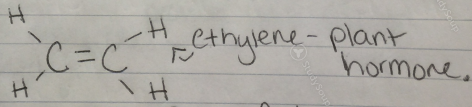 H
H
C = C
ethylene - plant
hormone.
H
H